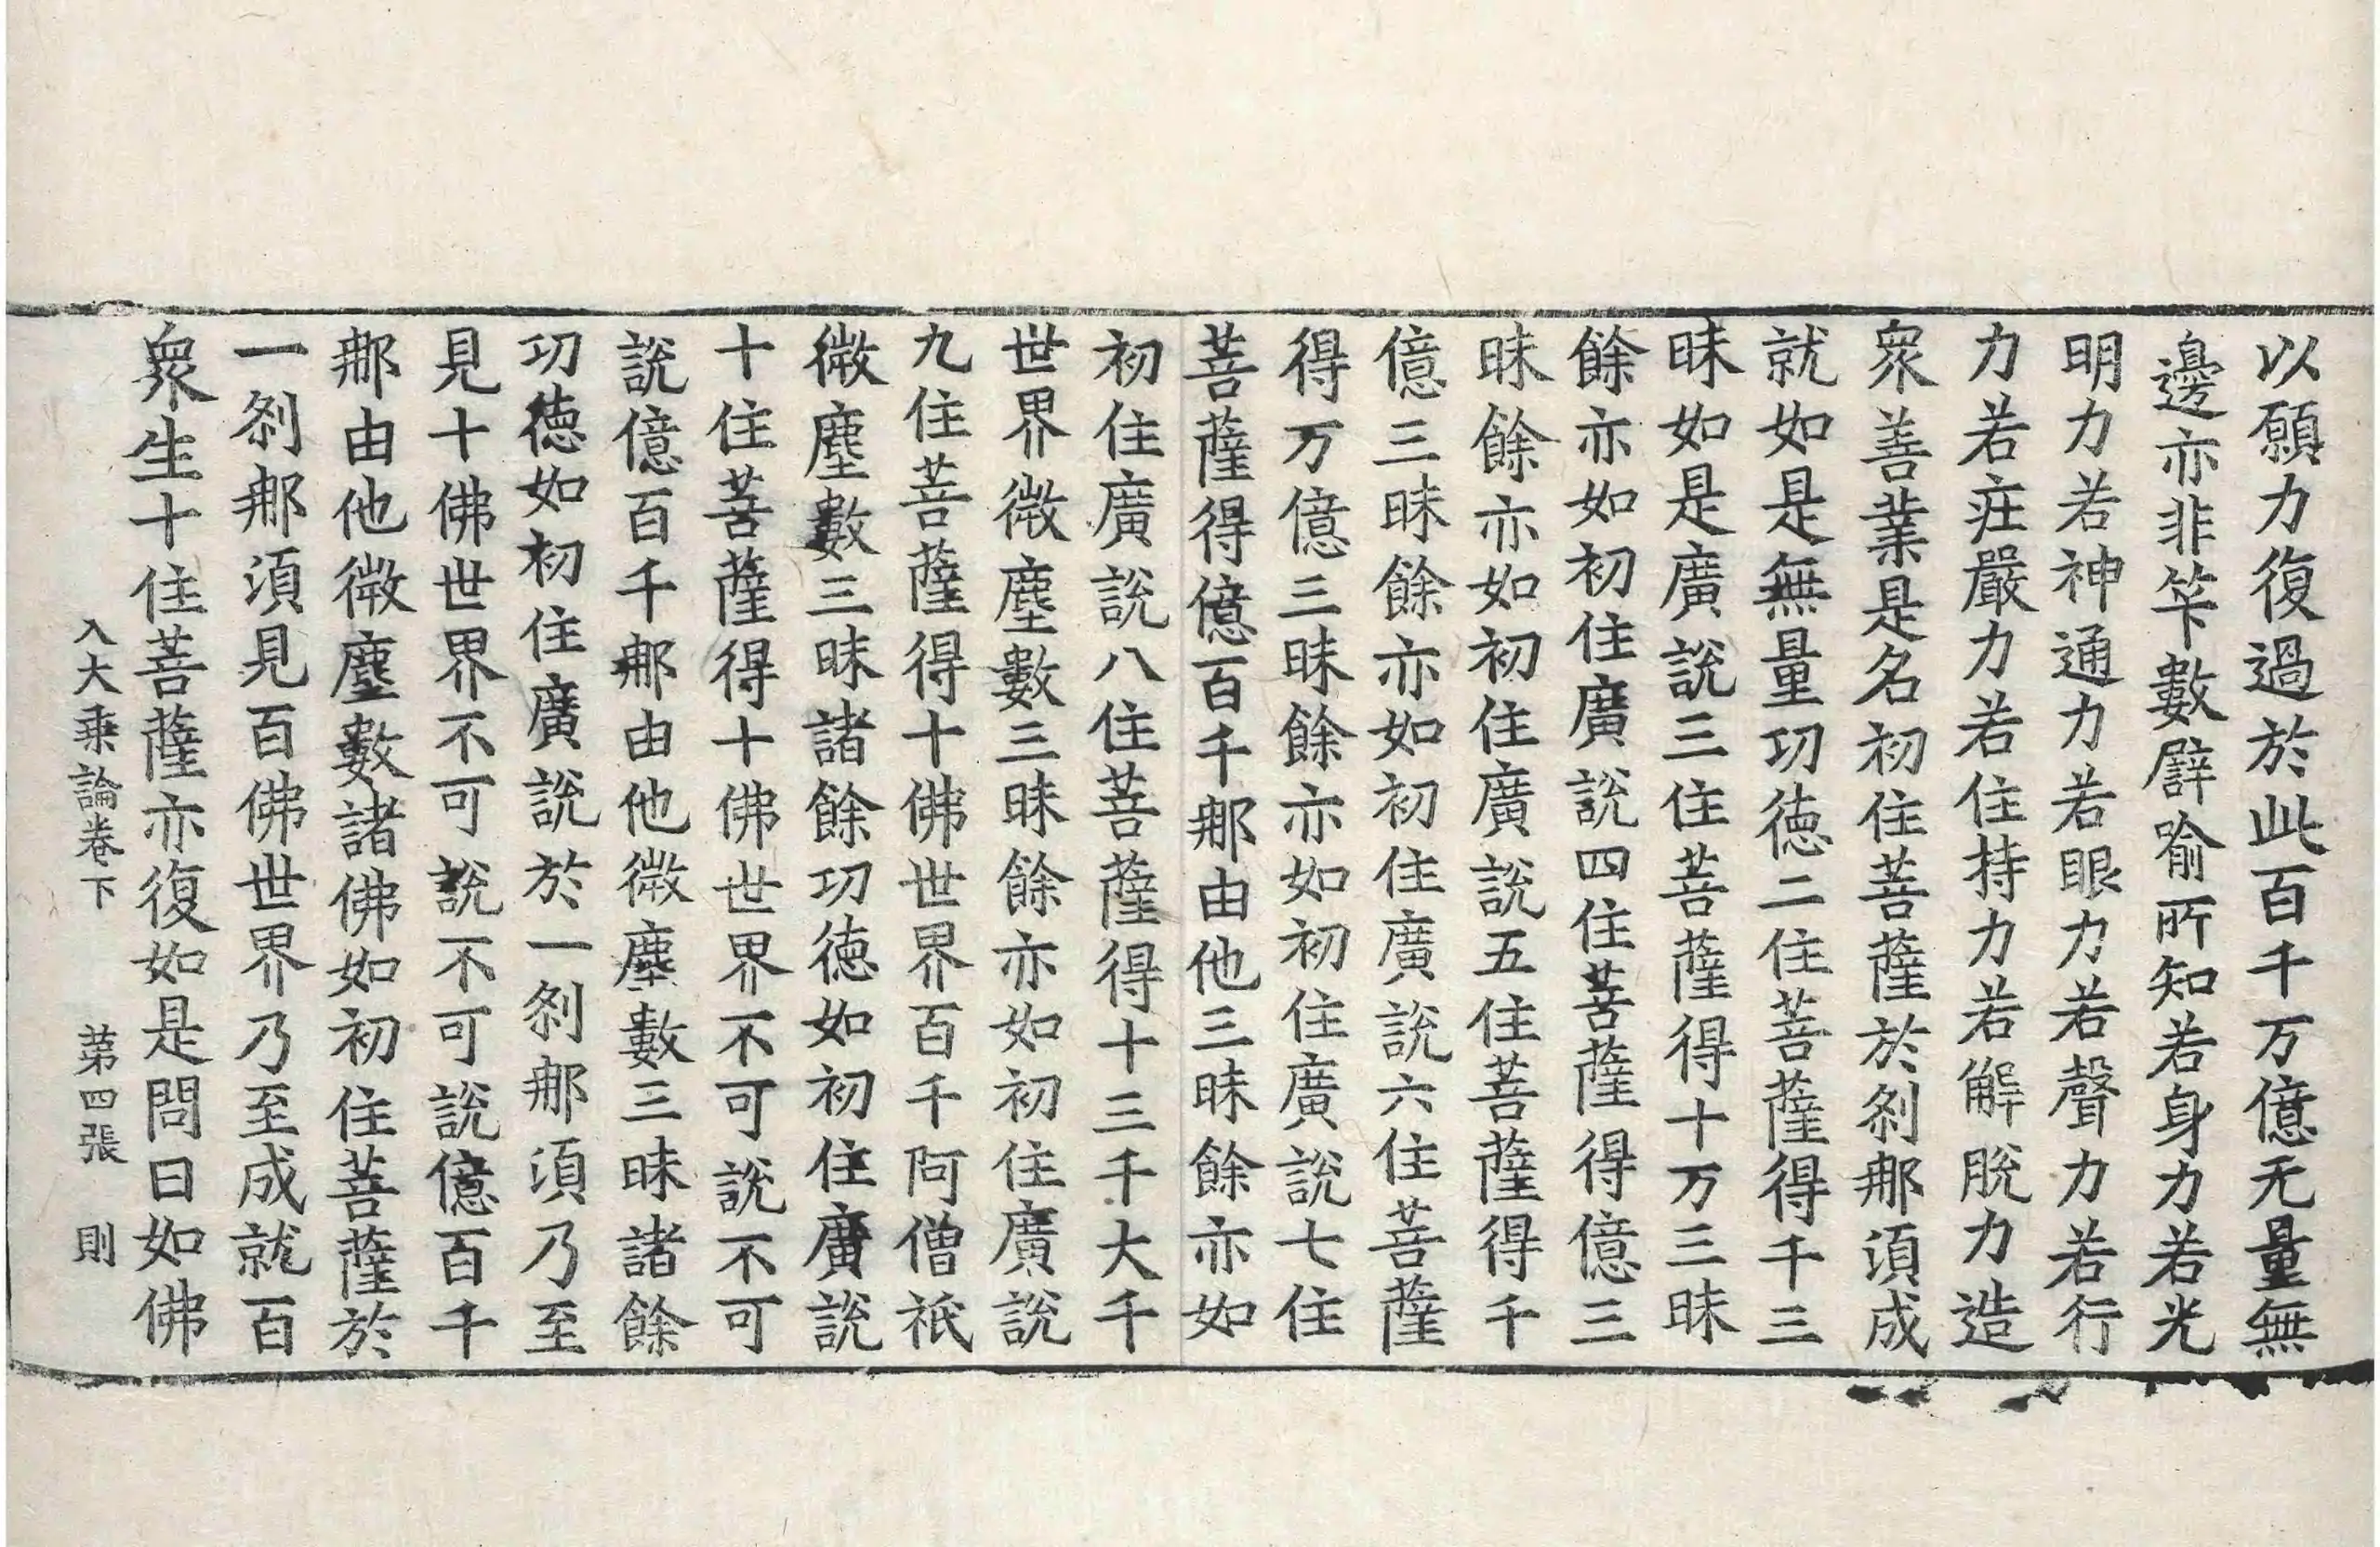 以願力復過於此百千万億无量無
邊亦非筭數譬喻所知若身力若光
明力若神通力若眼力若聲力若行
力若莊嚴力若住持力若解脫力造
衆善業是名初住菩薩於剎那湏成
就如是無量功德二住菩薩得千三
昧如是廣說三住菩薩得十万三昧
餘亦如初住廣說四住菩薩得億三
昧餘亦如初住廣說五住菩薩得千
億三昧餘亦如初住廣說六住菩薩
得万億三昧餘亦如初住廣說七住
菩薩得億百千那由他三昧餘亦如
初住廣說八住菩薩得十三千大千
世界微塵數三昧餘亦如初住廣說
九住菩薩得十佛世界百千阿僧祇
微塵數三昧諸餘功德如初住廣說
十住菩薩得十佛世界不可說不可
說億百千那由他微塵數三昧諸餘
功德如初住廣說於一剎那湏乃至
見十佛世界不可說不可說億百千
那由他微塵數諸佛如初住菩薩於
一剎那湏見百佛世界乃至成就百
衆生十住菩薩亦復如是問曰如佛
入大乘論卷下 第四張 則